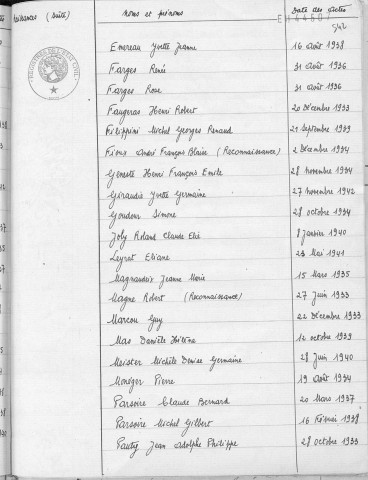 Naissances (Suite) Noms et prénoms Date des actes
542
Emereau Yvette Jeanne 16 Août 1938
Farges Renée 31 Août 1936
Farges Rose 31 Août 1936
Faugeras Henri Robert 20 Décembre 1933
Filippini Michel Georges Renaud 21 Septembre 1939
André François Blaise (Reconnaissance) 2 Décembre 1934
Geneste Henri François Emile 28 novembre 1934
Giraudie Yvette Germaine 27 novembre 1942
Goudour Simone 28 octobre 1934
Joly Roland Claude Elie 8 Janvier 1940
Leyrat Eliane 23 Mai 1941
Magnaudeix Jeanne Marie 15 Mars 1935
Magne Robert (Reconnaissance) 27 Juin 1933
Marcou Guy 22 Décembre 1933
Mas Danièle Hélène 12 octobre 1939
Meister Michèle Denise Germaine 28 Juin 1940
Monéger Pierre 19 Août 1934
Parsoire Claude Bernard 20 Mars 1937
Parsoire Michel Gilbert 16 Février 1938
Pautty Jean Adolphe Philippe 28 octobre 1933